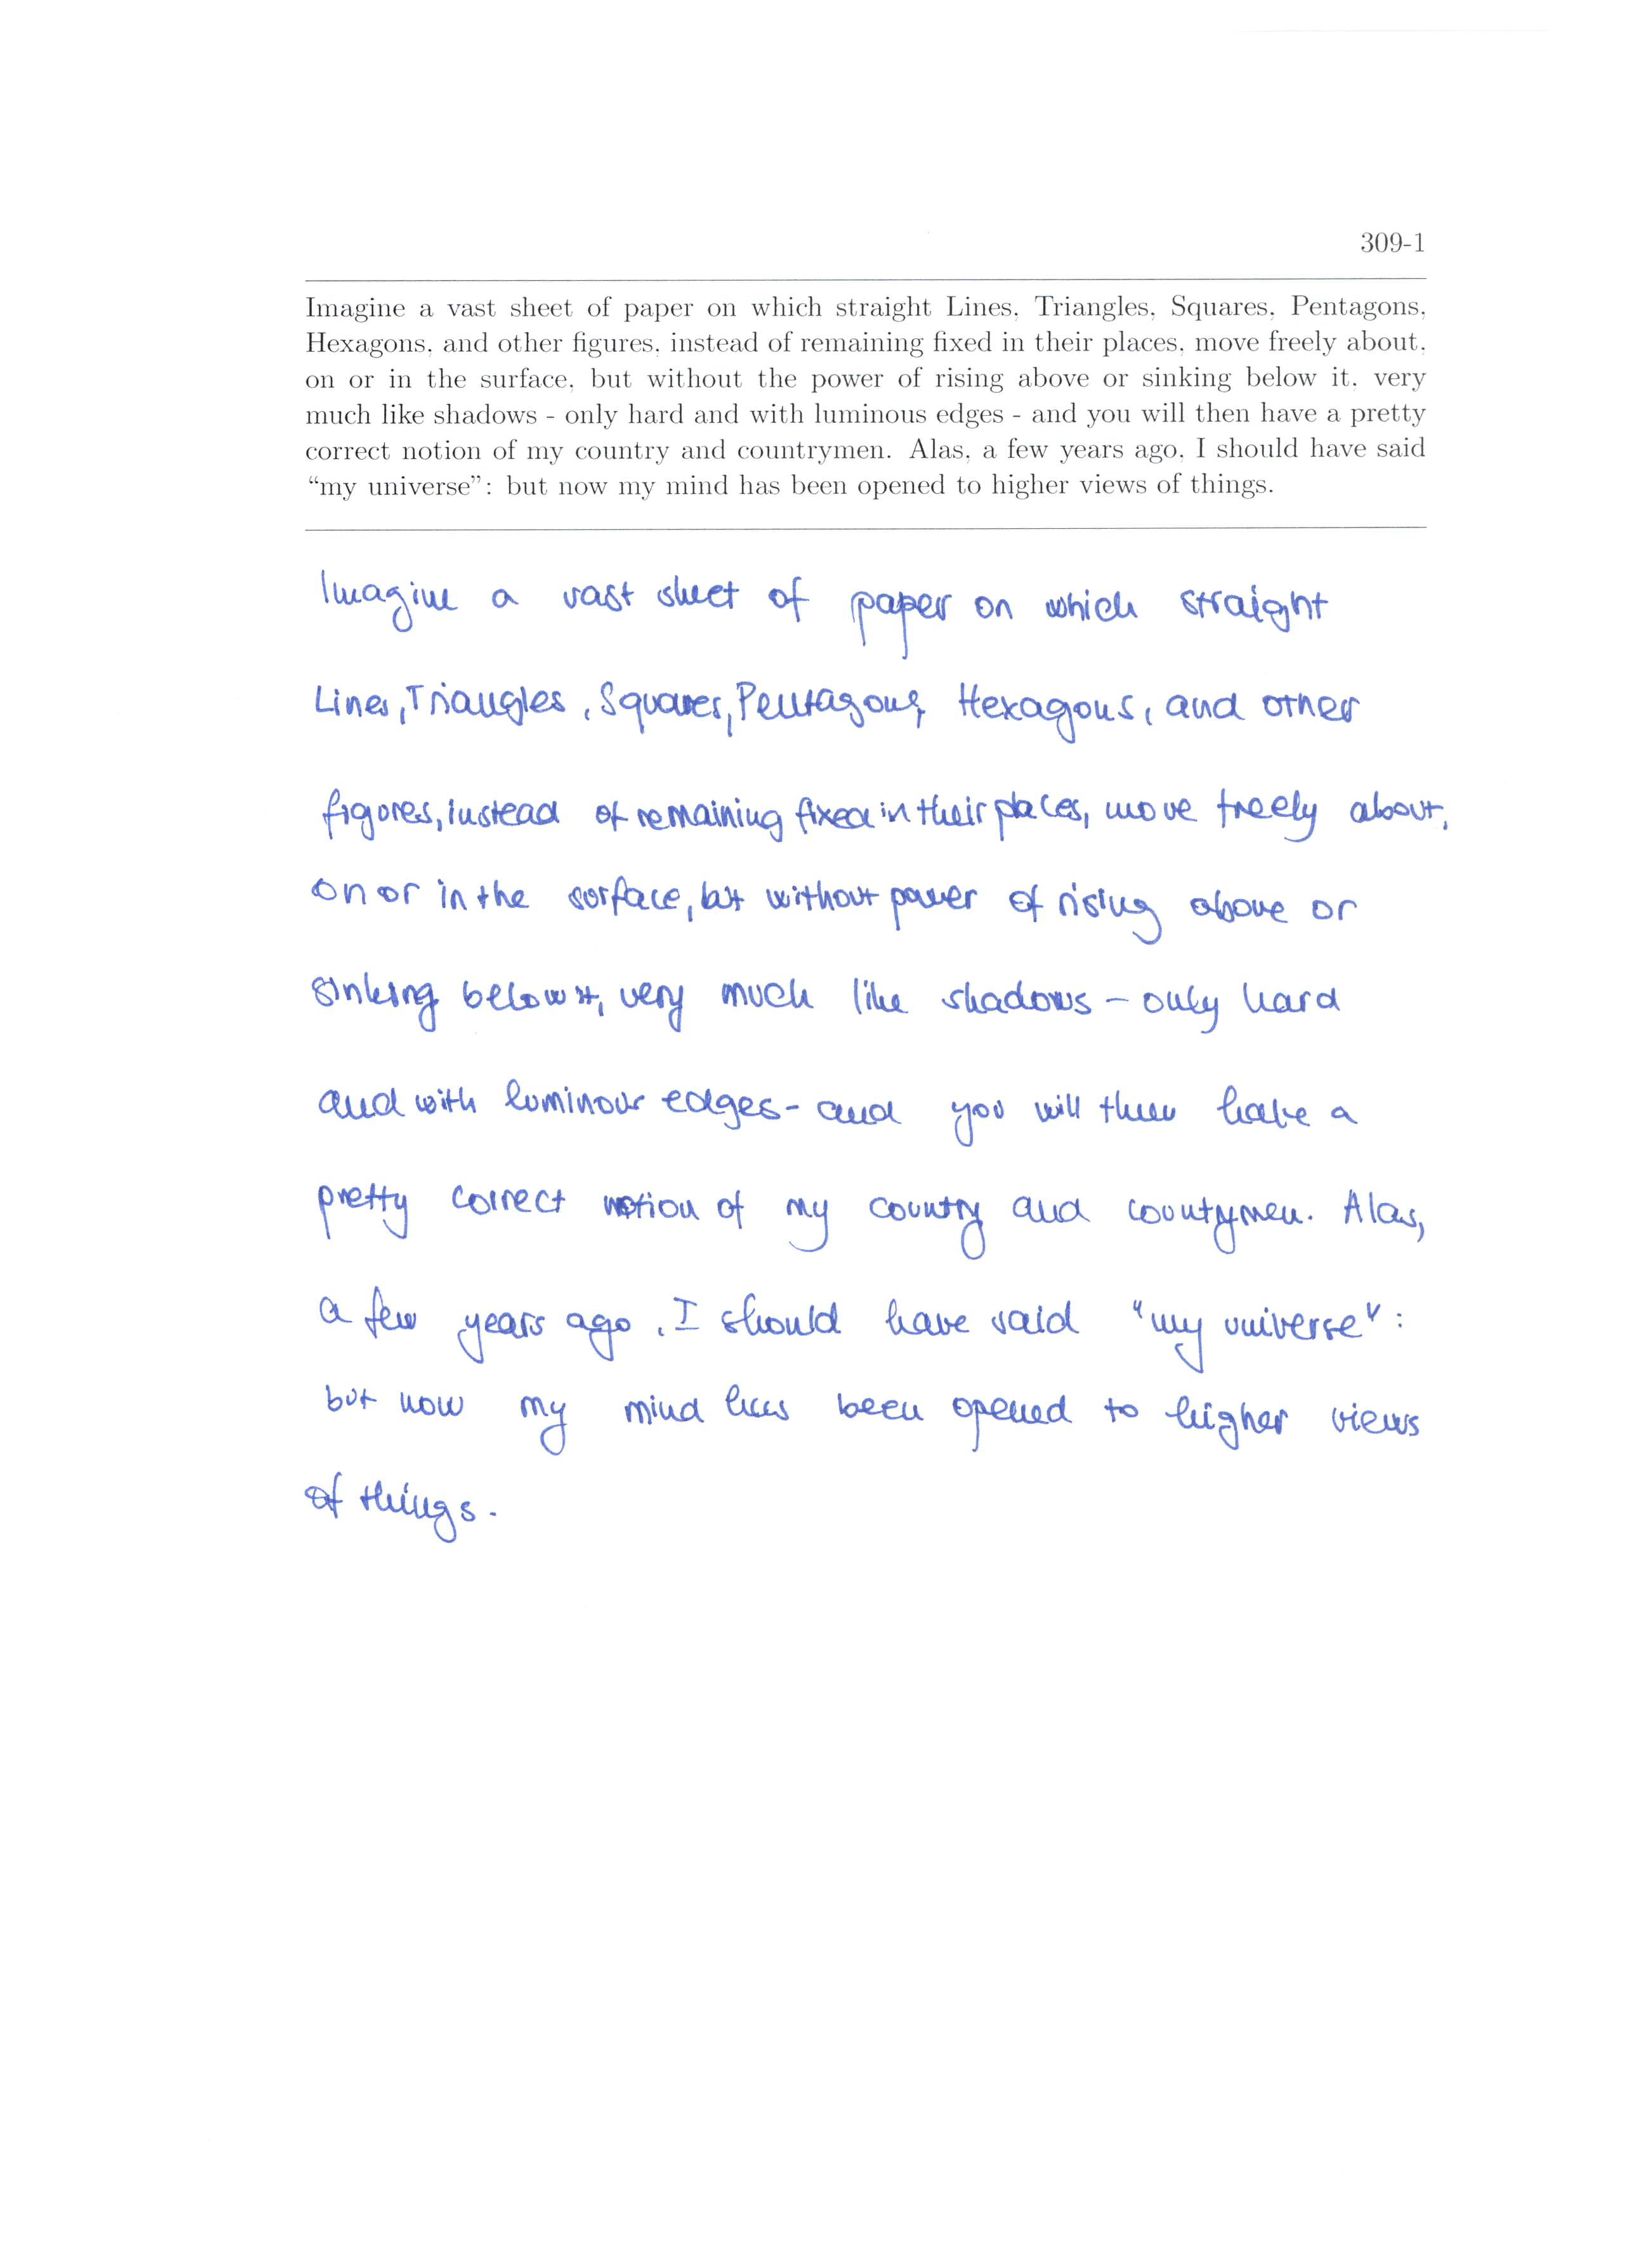 309-1
Imagine a vast sheet of paper on which straight Lines, Triangles, Squares, Pentagons,
Hexagons, and other figures, instead of remaining fixed in their places, move freely about,
on or in the surface, but without the power of rising above or sinking below it, very
much like shadows - only hard and with luminous edges - and you will then have a pretty
correct notion of my country and countrymen. Alas, a few years ago, I should have said
“my universe”: but now my mind has been opened to higher views of things.
Imagine a vast sheet of paper on which straight
Lines, Triangles, Squares, Pentagons, Hexagons, and other
figures, instead of remaining fixed in their places, move freely about,
on or in the surface, but without power of rising above or
sinking below it, very much like shadows - only hard
and with luminous edges - and you will then have a
pretty correct notion of my country and countymen. Alas,
a few years ago, I should have said "my universe":
but now my mind has been opened to higher views
of things.